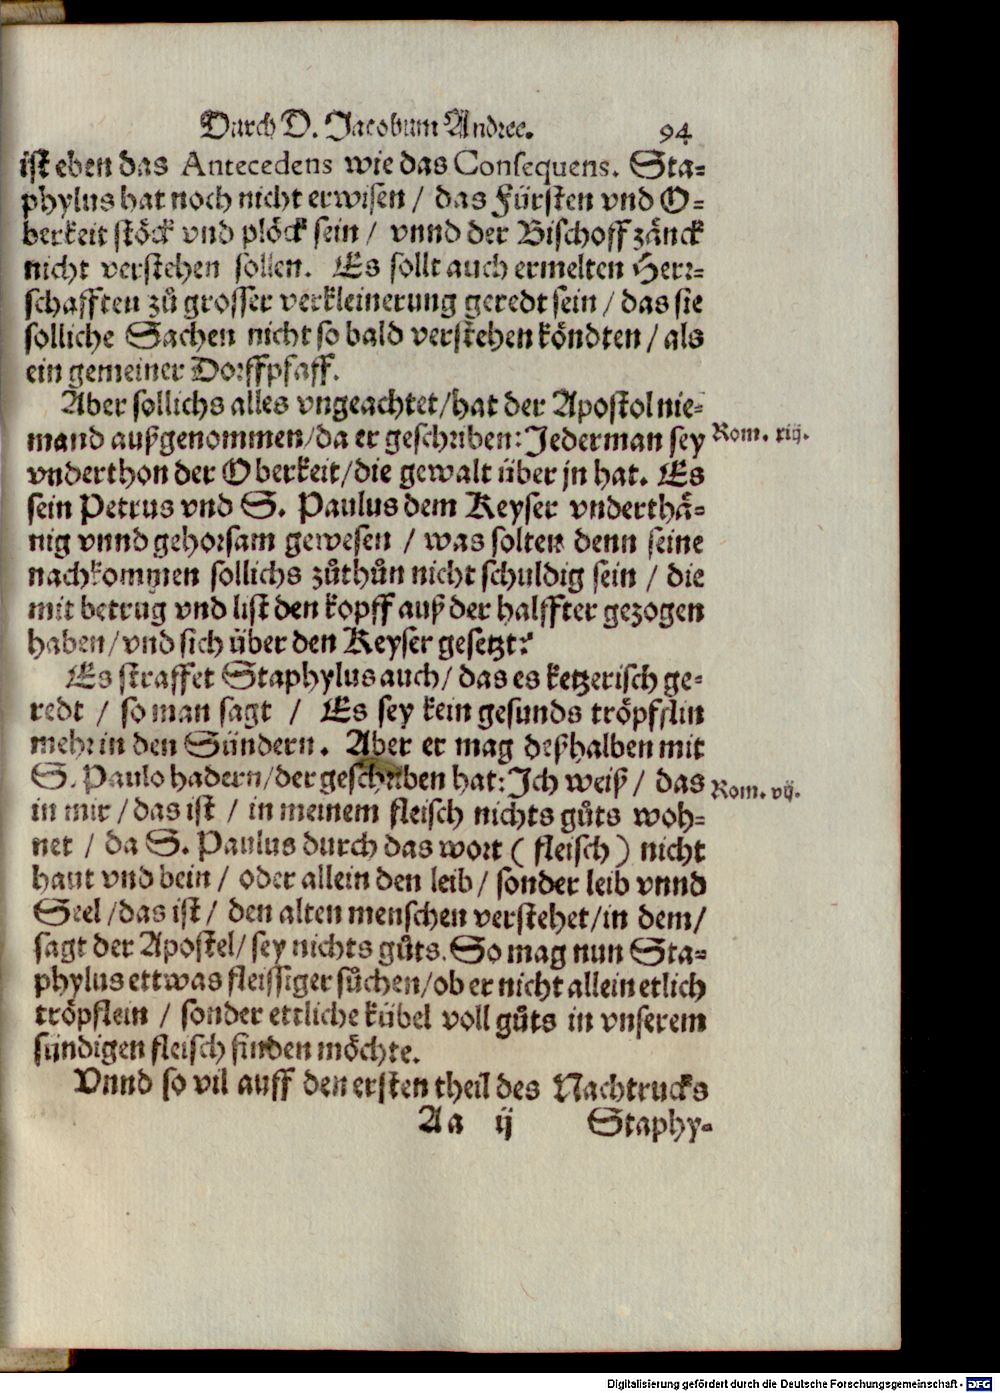 Durch D. Jacobum Andree. 94
ist eben das Antecedens wie das Consequens. Sta⸗
phylus hat noch nicht erwisen / das Fürsten vnd O⸗
berkeit stöck vnd plöck sein / vnnd der Bischoff zänck
nicht verstehen sollen. Es sollt auch ermelten Herr⸗
schafften zů grosser verkleinerung geredt sein / das sie
solliche Sachen nicht so bald verstehen köndten / als
ein gemeiner Dorffpfaff.
Aber sollichs alles vngeachtet/hat der Apostol nie⸗
mand außgenommen/da er geschriben: Jederman sey Rom. xiij.
vnderthon der Oberkeit/die gewalt über jn hat. Es
sein Petrus vnd S. Paulus dem Keyser vnderthä⸗
nig vnnd gehorsam gewesen / was solten denn seine
nachkommen sollichs zůthůn nicht schuldig sein / die
mit betrug vnd list den kopff auß der halffter gezogen
haben/vnd sich über den Keyser gesetzt?
Es straffet Staphylus auch/ das es ketzerisch ge⸗
redt / so man sagt / Es sey kein gesunds tröpfflin
mehr in den Sündern. Aber er mag deßhalben mit
S. Paulo hadern/der geschriben hat: Ich weiß / das Rom. vij.
in mir / das ist / in meinem fleisch nichts gůts woh⸗
net / da S. Paulus durch das wort ( fleisch ) nicht
haut vnd bein / oder allein den leib / sonder leib vnnd
Seel /das ist / den alten menschen verstehet/in dem/
sagt der Apostel/ sey nichts gůts. So mag nun Sta⸗
phylus ettwas fleissiger sůchen/ob er nicht allein etlich
tröpflein / sonder ettliche kübel voll gůts in vnserem
sündigen fleisch finden möchte.
Vnnd so vil auff den ersten theil des Nachtrucks
Aa ij Staphy⸗
Digitalisierung gefördert durch die Deutsche Forschungsgemeinschaft - DFG